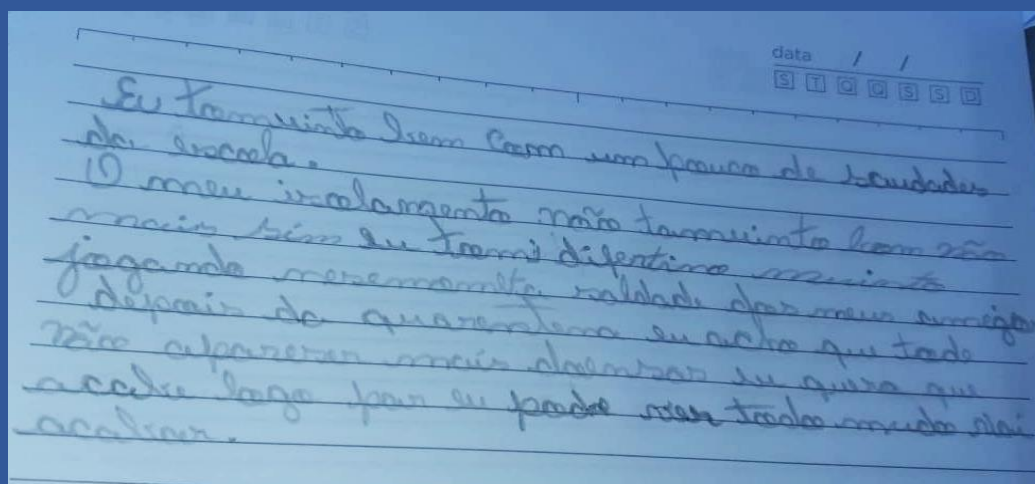 data / /
S T Q Q S S D
Eu tomuinto bem com um pouco de saudades
da escola.
O meu isolamento não tamuinto bom não
mais sim eu tomi difentino muinto
jogando saldade dos meus amigo
depois da quarentena eu acho que tode
não aparecer mais doensas eu quero que
acabe logo par eu pode ver todo mudo
acabar.